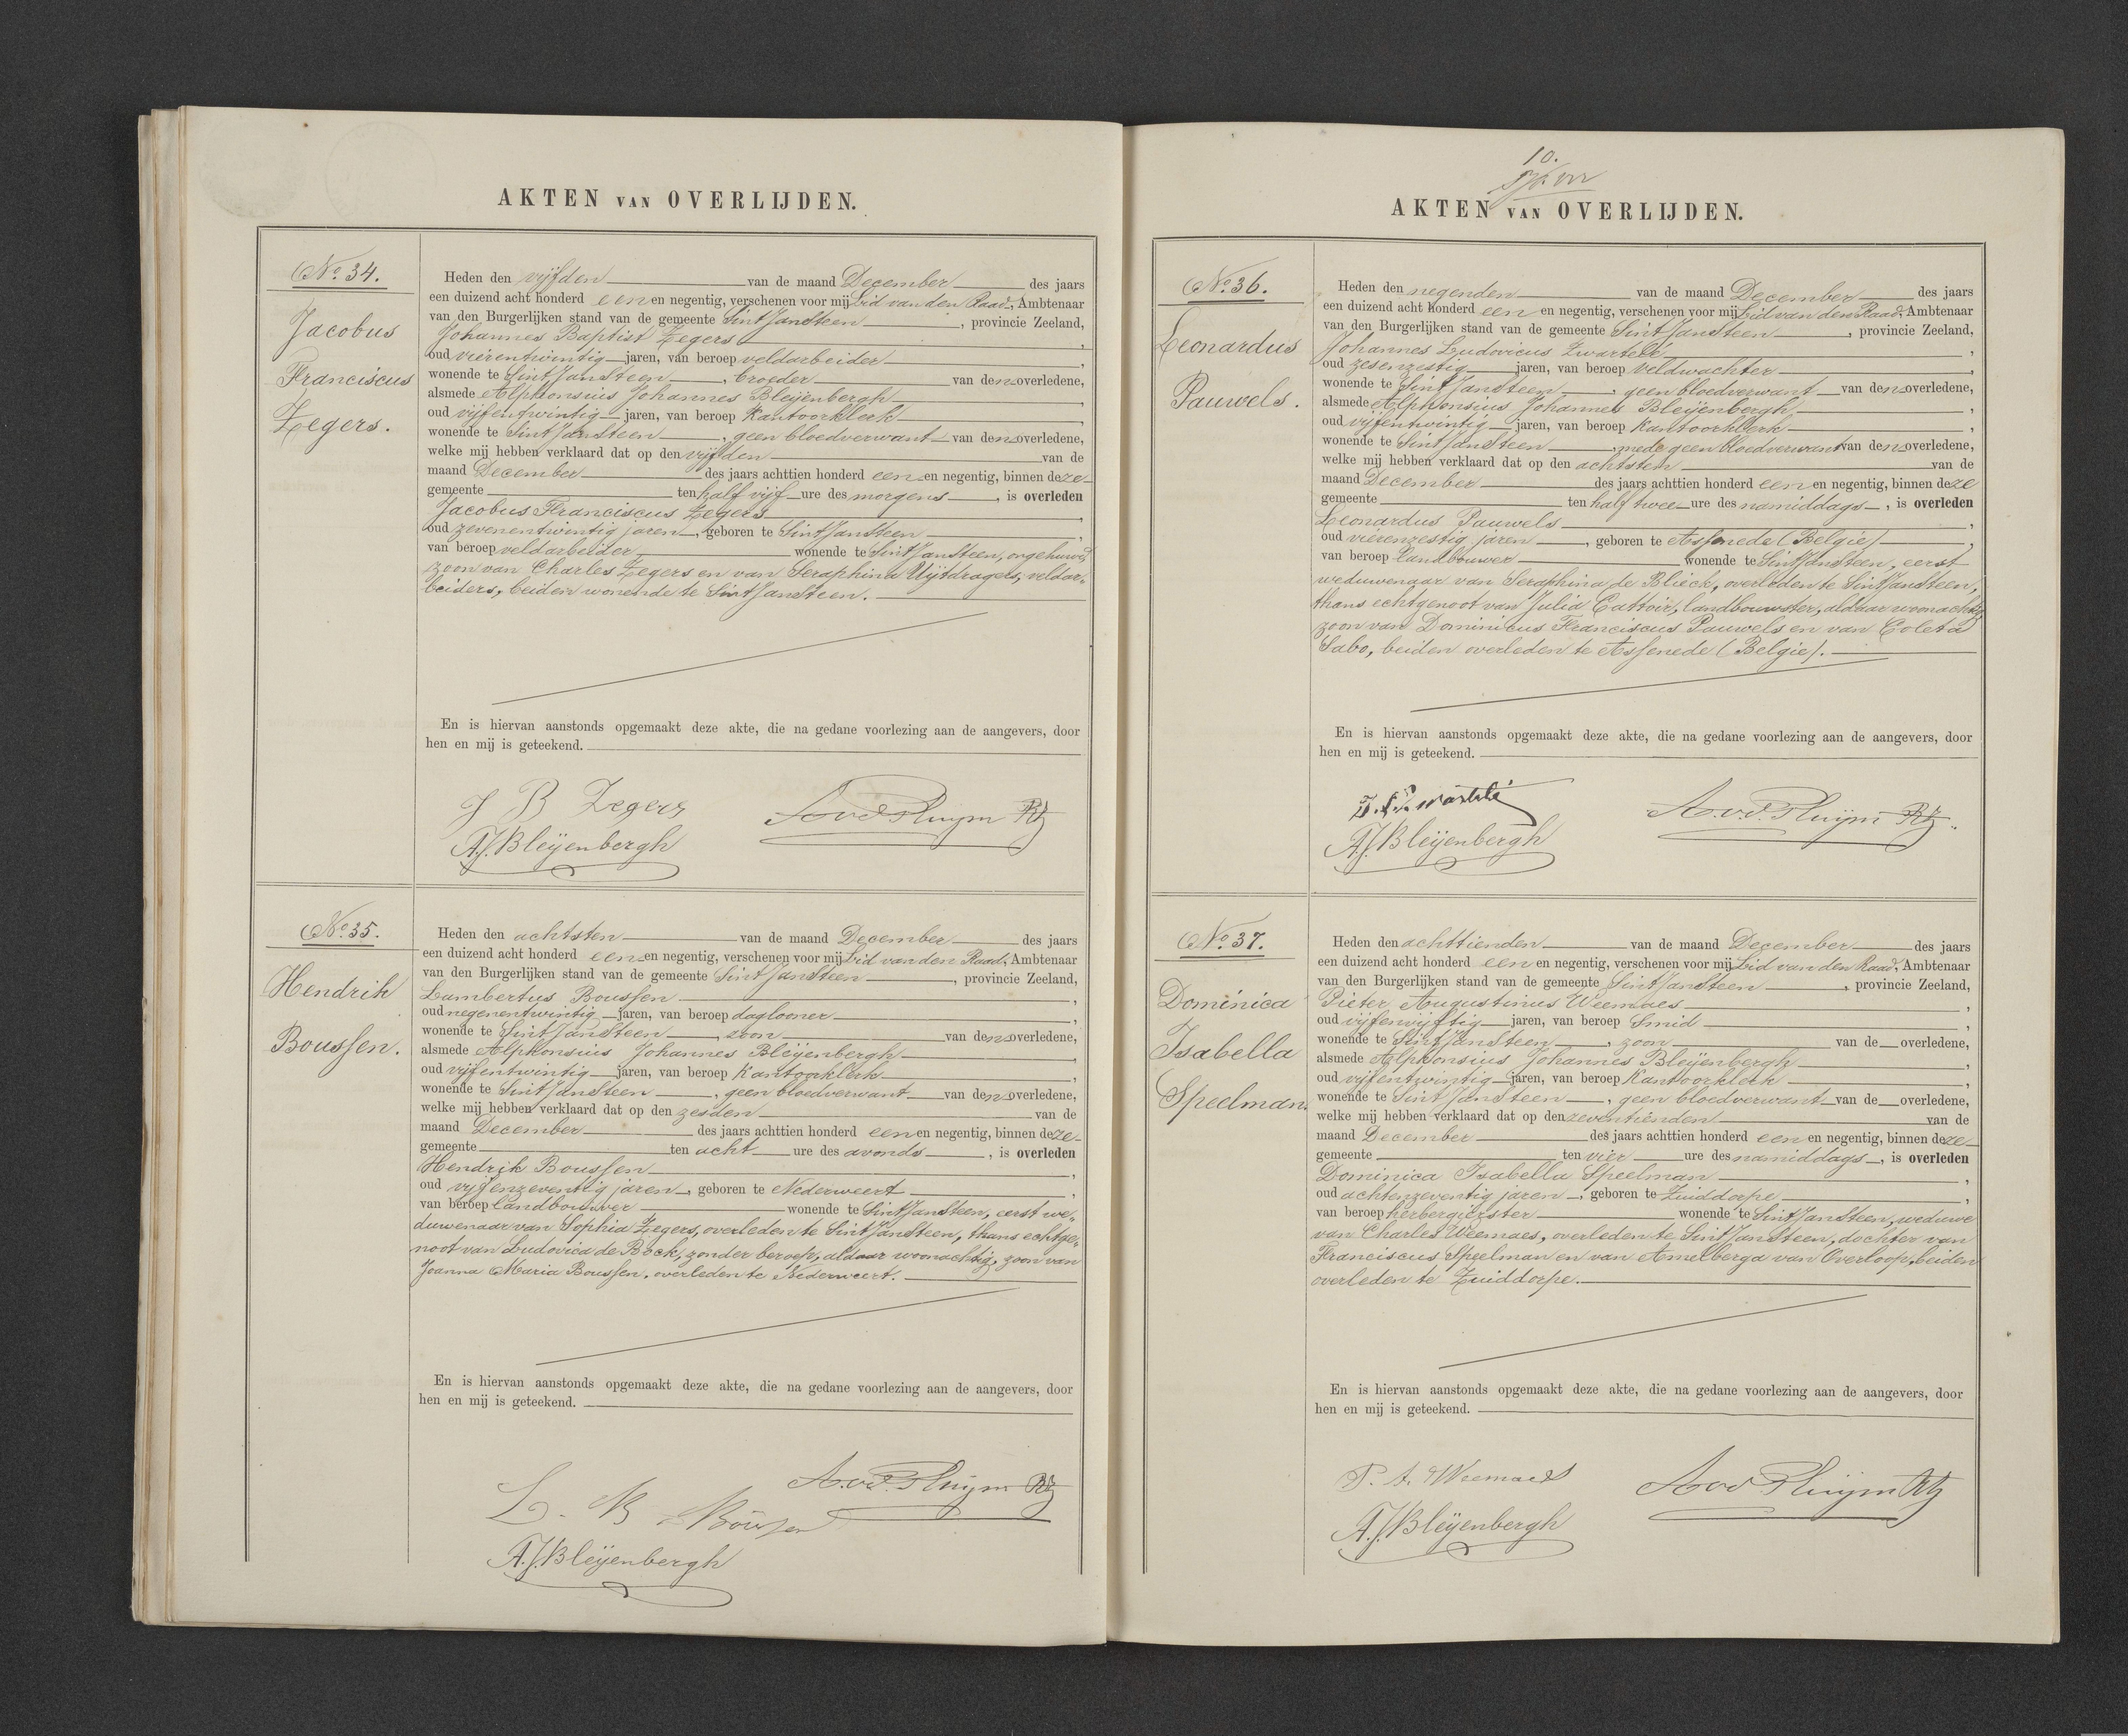 AKTEN VAN OVERLIJDEN.
No. 34.
Jacobus
Franciscus
Zegers.
Heden den vijfden van de maand December des jaars
een duizend acht honderd een en negentig, verschenen voor mij Lid van den Raad, Ambtenaar
van den Burgerlijken stand van de gemeente Sint Jansteen, provincie Zeeland,
Johannes Baptist Zegers,
oud vierentwintig jaren, van beroep veldarbeider,
wonende te Sint Jansteen, broeder van den overledene,
alsmede Alphonsius Johannes Bleijenbergh,
oud vijfentwintig jaren, van beroep Kantoorklerk,
wonende te Sint Jansteen, geen bloedverwant van den overledene,
welke mij hebben verklaard dat op den vijfden van de
maand December des jaars achttien honderd een en negentig, binnen deze
gemeente ten half vijf ure des morgens, is overleden
Jacobus Franciscus Zegers,
oud zevenentwintig jaren, geboren te Sint Jansteen,
van beroep veldarbeider wonende te Sint Jansteen, ongehuwd,
zoon van Charles Zegers en van Seraphina Uijtdragers, veldar-
beiders, beiden wonende te Sint Jansteen.
En is hiervan aanstonds opgemaakt deze akte, die na gedane voorlezing aan de aangevers, door
hen en mij is geteekend.
J B Zegers
A.v.d. Pluijm Rz
A.J. Bleijenbergh
No. 35.
Hendrik
Boussen.
Heden den achtsten van de maand December des jaars
een duizend acht honderd een en negentig, verschenen voor mij Lid van den Raad, Ambtenaar
van den Burgerlijken stand van de gemeente Sint Jansteen, provincie Zeeland,
Lambertus Boussen,
oud negenentwintig jaren, van beroep daglooner,
wonende te Sint Jansteen, zoon van den overledene,
alsmede Alphonsius Johannes Bleijenbergh,
oud vijfentwintig jaren, van beroep Kantoorklerk,
wonende te Sint Jansteen, geen bloedverwant van den overledene,
welke mij hebben verklaard dat op den zesden van de
maand December des jaars achttien honderd een en negentig, binnen deze
gemeente ten acht ure des avonds, is overleden
Hendrik Boussen,
oud vijfenzeventig jaren, geboren te Nederweert,
van beroep landbouwer wonende te Sint Jansteen, eerst we-
duwenaar van Sophia Zegers, overleden te Sint Jansteen, thans echtge-
noot van Ludovica de Bock, zonder beroep, aldaar woonachtig, zoon van
Joanna Maria Boussen, overleden te Nederweert.
En is hiervan aanstonds opgemaakt deze akte, die na gedane voorlezing aan de aangevers, door
hen en mij is geteekend.
A.v.d. Pluijm Rz
L. B Boussen
A.J. Bleijenbergh
10.
AKTEN VAN OVERLIJDEN.
No. 36.
Leonardus
Pauwels.
Heden den negenden van de maand December des jaars
een duizend acht honderd een en negentig, verschenen voor mij Lid van den Raad, Ambtenaar
van den Burgerlijken stand van de gemeente Sint Jansteen, provincie Zeeland,
Johannes Ludovicus Zwartelé,
oud zesenzestig jaren, van beroep veldwachter,
wonende te Sint Jansteen, geen bloedverwant van den overledene,
alsmede Alphonsius Johannes Bleijenbergh,
oud vijfentwintig jaren, van beroep Kantoorklerk,
wonende te Sint Jansteen, mede geen bloedverwant van den overledene,
welke mij hebben verklaard dat op den achtsten van de
maand December des jaars achttien honderd een en negentig, binnen deze
gemeente ten half twee ure des namiddags, is overleden
Leonardus Pauwels,
oud vierenzestig jaren, geboren te Assenede (Belgie),
van beroep Landbouwer wonende te Sint Jansteen, eerst
weduwenaar van Seraphina de Blieck, overleden te Sint Jansteen,
thans echtgenoot van Julia Cattoir, landbouwster, aldaar woonachtig
zoon van Dominicus Franciscus Pauwels en van Coleta
Sabo, beiden overleden te Assenede (Belgie).
En is hiervan aanstonds opgemaakt deze akte, die na gedane voorlezing aan de aangevers, door
hen en mij is geteekend.
A.v.d. Pluijm Rz.
A.J. Bleijenbergh
No. 37.
Dominica
Isabella
Speelman.
Heden den achttienden van de maand December des jaars
een duizend acht honderd een en negentig, verschenen voor mij Lid van den Raad, Ambtenaar
van den Burgerlijken stand van de gemeente Sint Jansteen, provincie Zeeland,
Pieter Augustinus Weemaes,
oud vijfenvijftig jaren, van beroep Smid,
wonende te Sint Jansteen, zoon van de overledene,
alsmede Alphonsius Johannes Bleijenbergh,
oud vijfentwintig jaren, van beroep Kantoorklerk,
wonende te Sint Jansteen, geen bloedverwant van de overledene,
welke mij hebben verklaard dat op den zeventienden van de
maand December des jaars achttien honderd een en negentig, binnen deze
gemeente ten vier ure des namiddags, is overleden
Dominica Isabella Speelman,
oud achtenzeventig jaren, geboren te Zuiddorpe,
van beroep herbergierster wonende te Sint Jansteen, weduwe
van Charles Weemaes, overleden te Sint Jansteen, dochter van
Franciscus Speelman en van Amelberga van Overloop, beiden
overleden te Zuiddorpe.
En is hiervan aanstonds opgemaakt deze akte, die na gedane voorlezing aan de aangevers, door
hen en mij is geteekend.
P. A. Weemaes
A.v.d. Pluijm Rz
A.J. Bleijenbergh